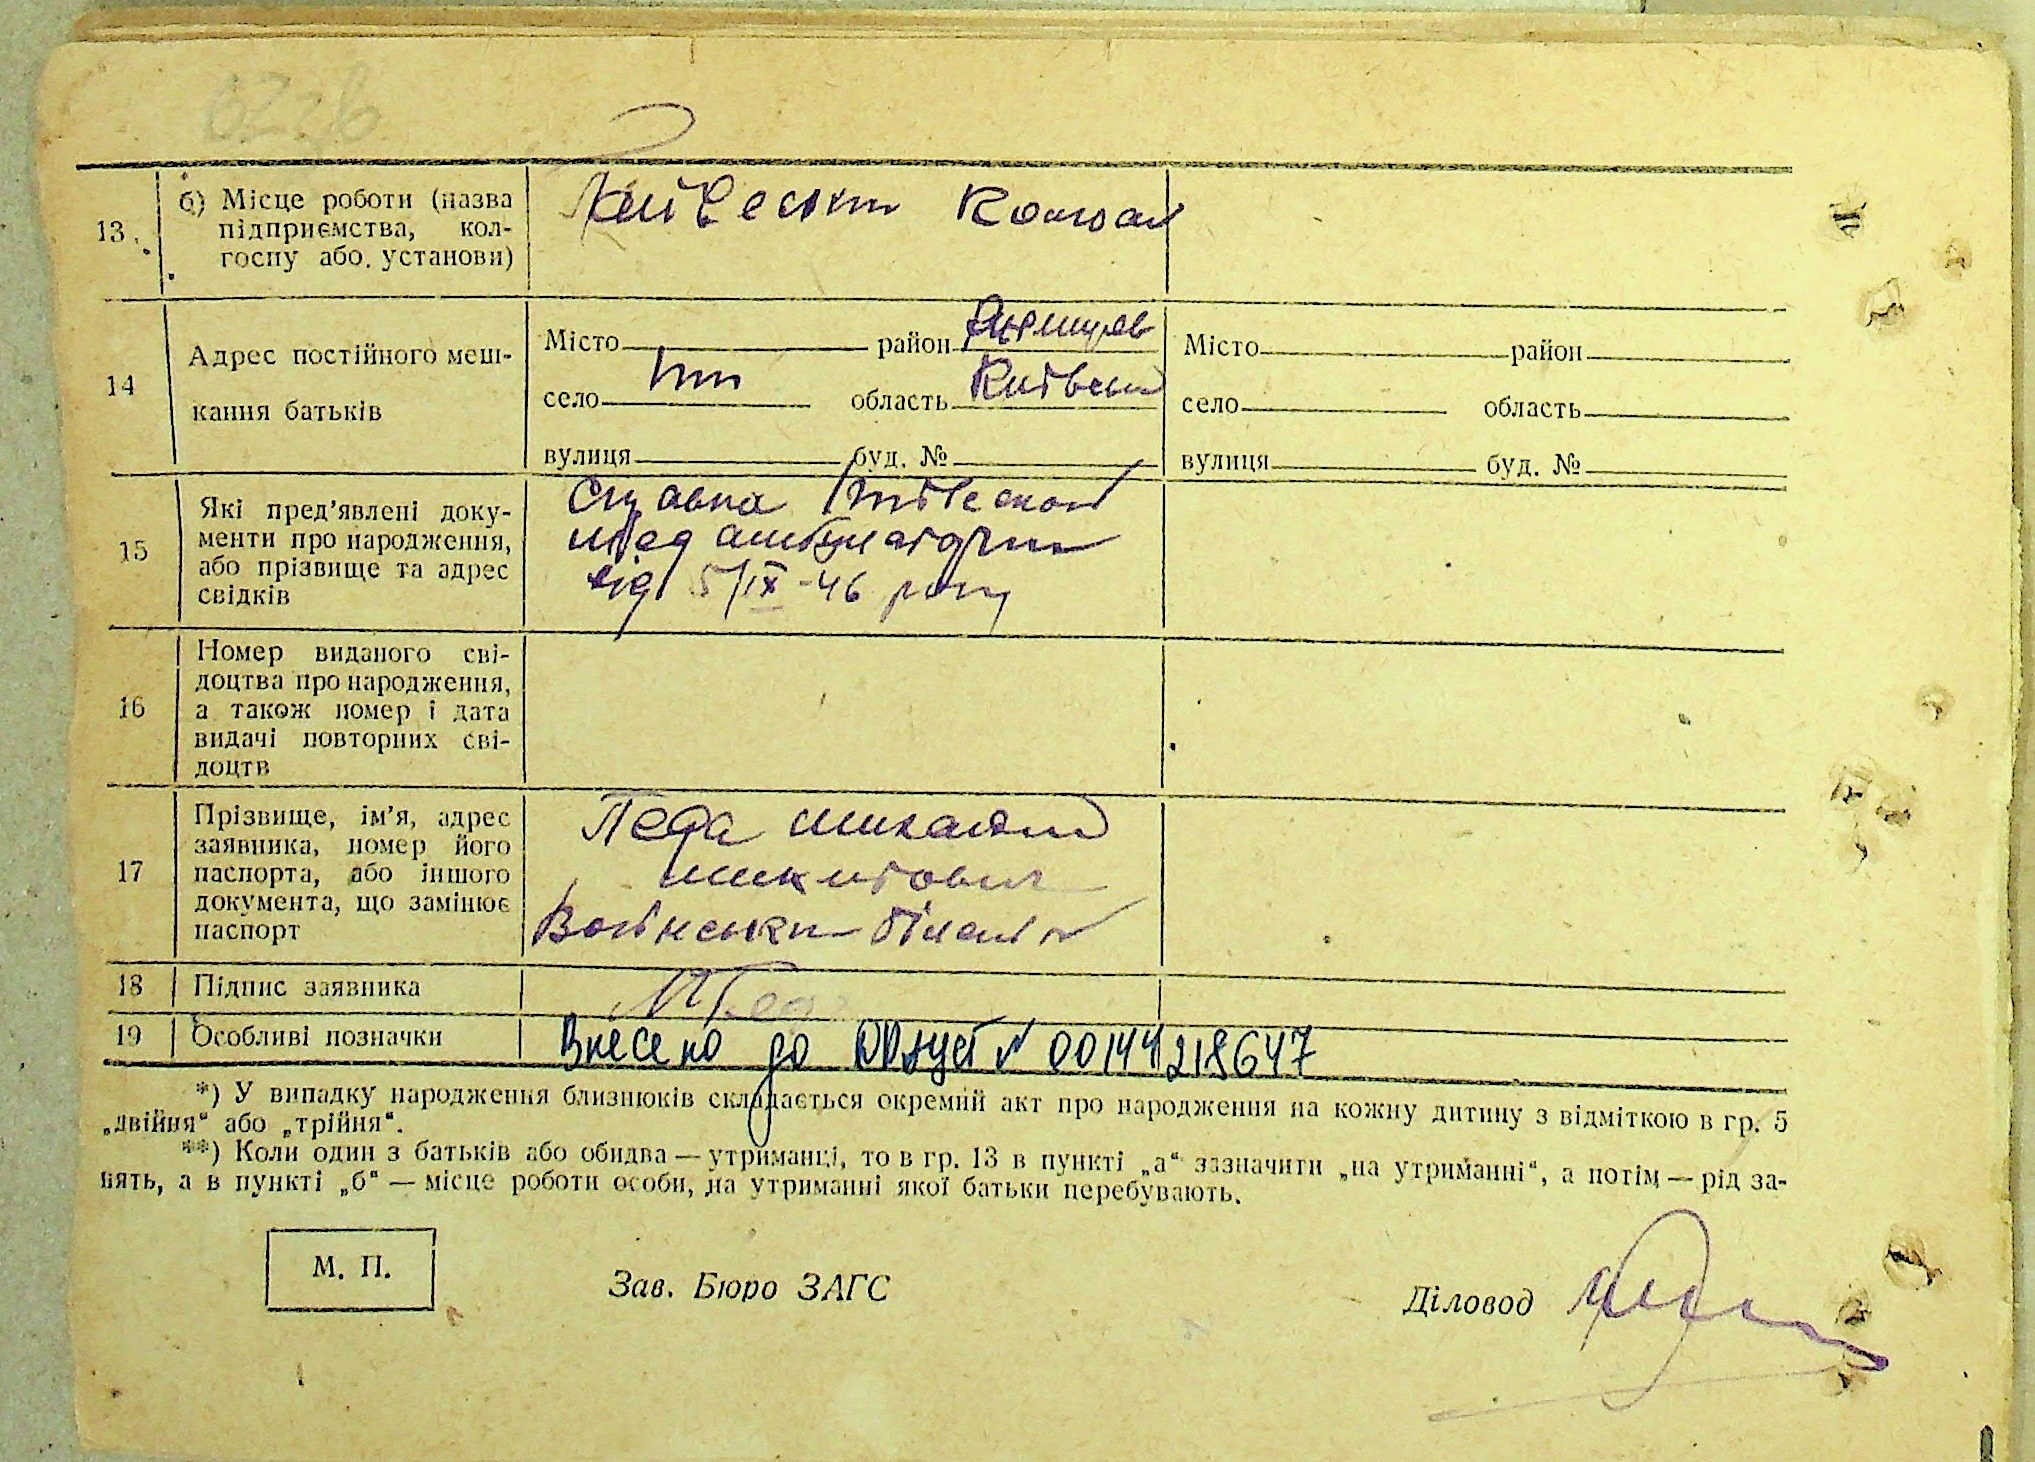 13
б) Місце роботи (назва
підприємства, кол-
госпу або установи)
14
Адрес постійного меш-
кання батьків
Місто район
село область Київськ
вулиця буд. №
Місто район
село область
вулиця буд. №
15
Які пред'явлені доку-
менти про народження,
або прізвище та адрес
свідків
Справка
мед амбулатории
від 5/IX-46 року
16
Номер виданого сві-
доцтва про народження,
а також номер і дата
видачі повторних сві-
доцтв
17
Прізвище, ім'я, адрес
заявника, номер його
паспорта, або іншого
документа, що замінює
паспорт
Педа
Микитович
білет №
18
Підпис заявника
19
Особливі позначки
Внесено до № 00144218647
*) У випадку народження близнюків складається окремий акт про народження на кожну дитину з відміткою в гр. 5
„двійня“ або „трійня“.
**) Коли один з батьків або обидва — утриманці, то в гр. 13 в пункті „а“ зазначити „на утриманні“, а потім — рід за-
нять, а в пункті „б“ — місце роботи особи, на утриманні якої батьки перебувають.
М. П.
Зав. Бюро ЗАГС
Діловод